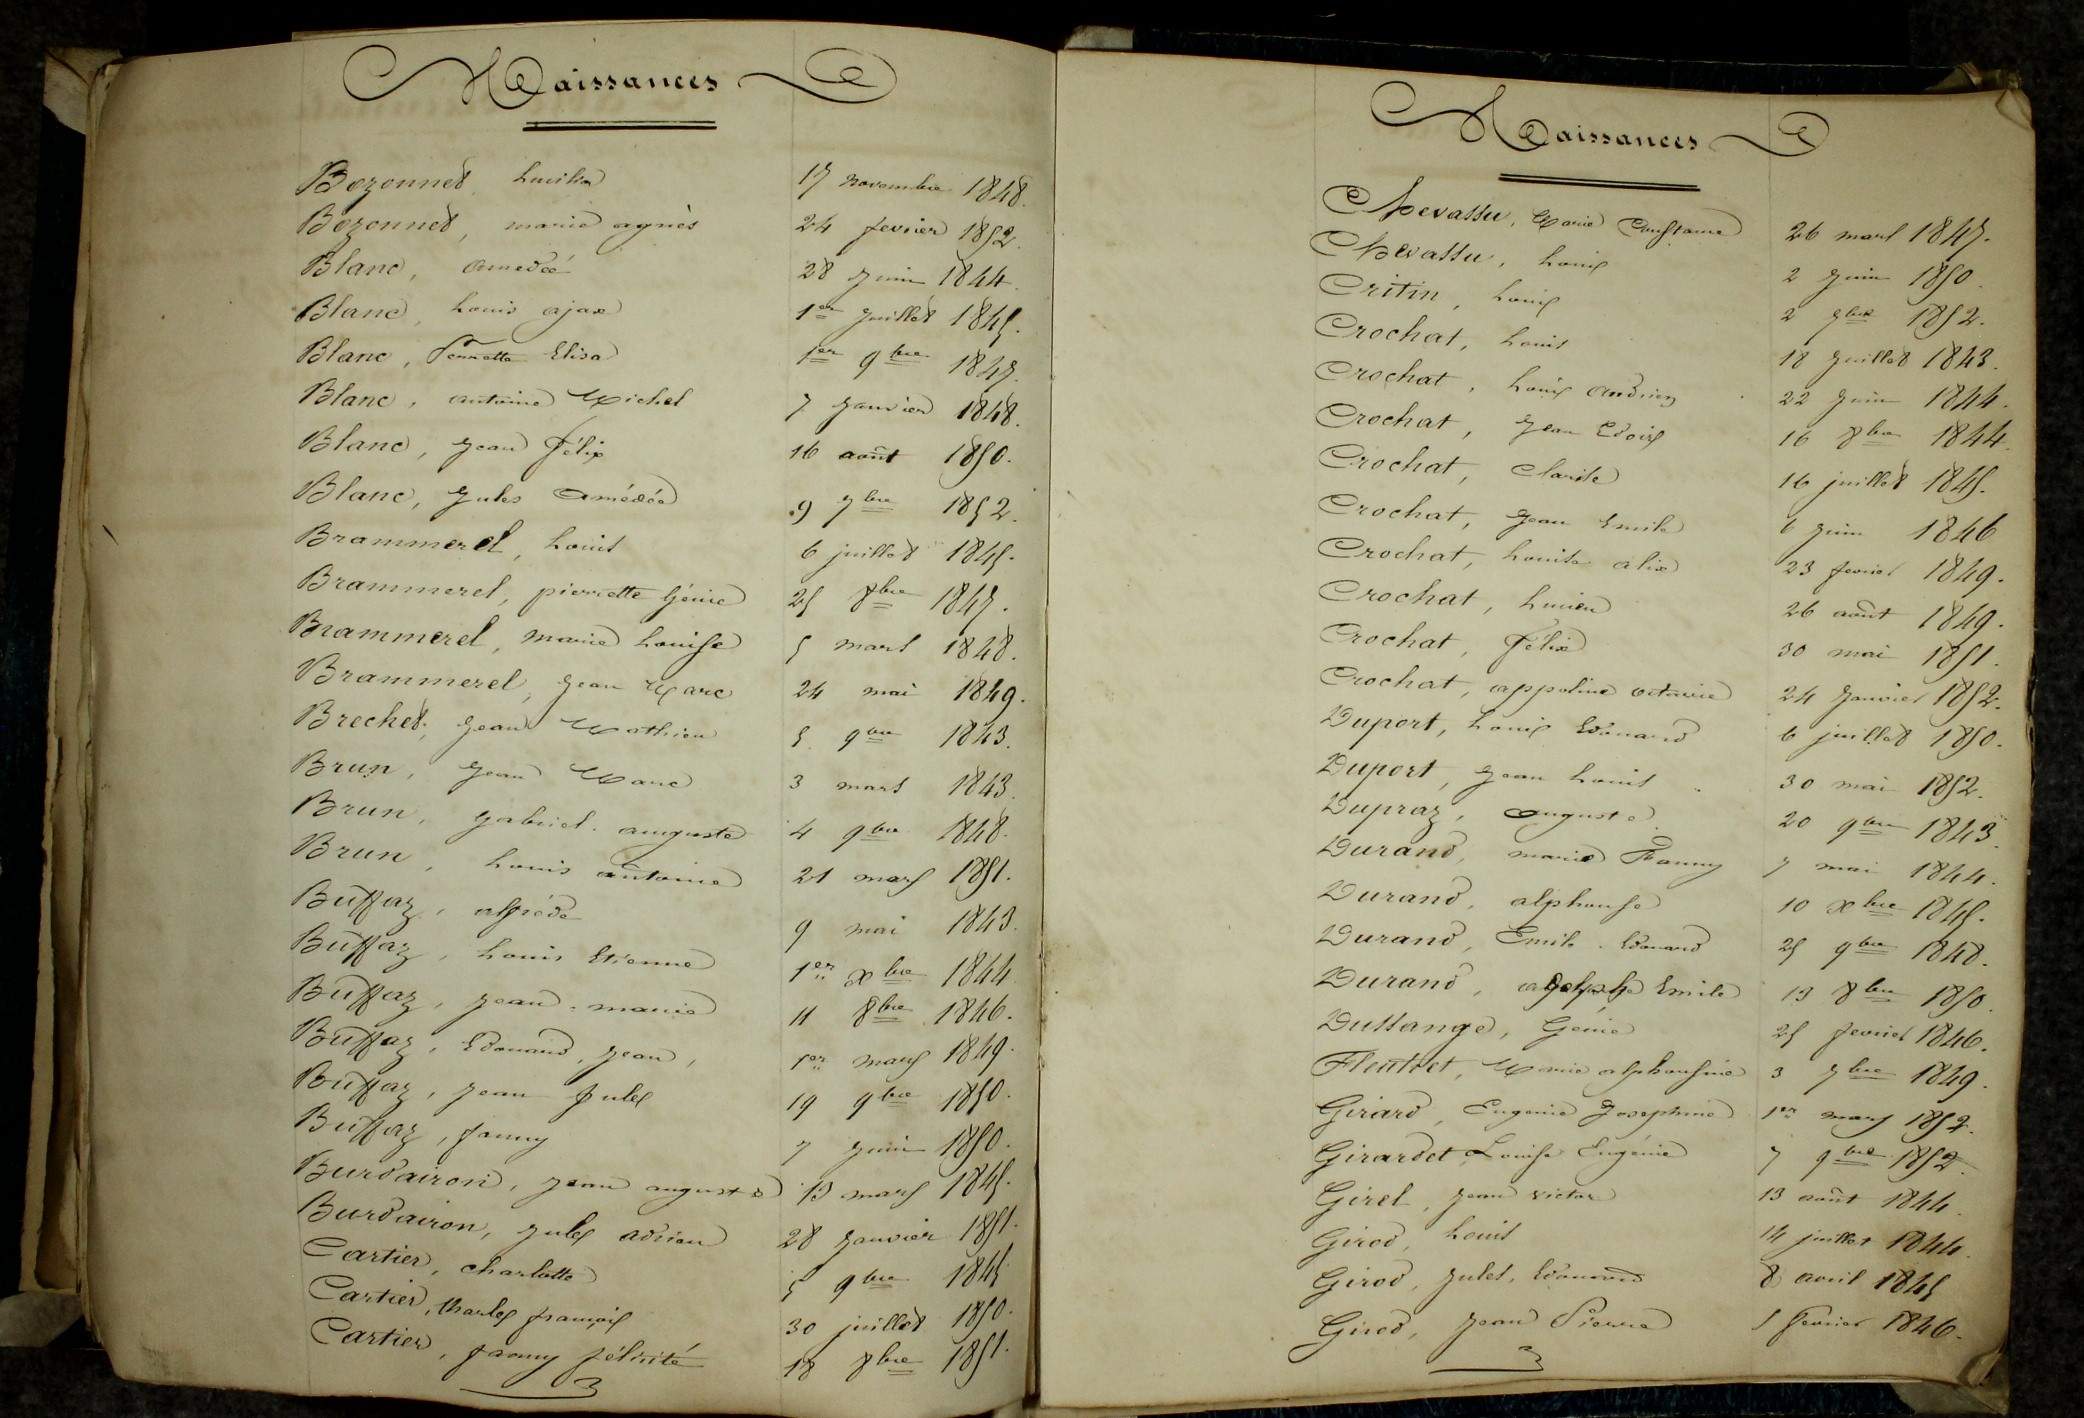 Naissances
Bozonnet Lucilia 17 novembre 1848.
Bozonnet, marie agnès 24 fevrier 1852.
Blanc, Amedée 28 Juin 1844.
Blanc, Louis ajax 1er Juillet 1845.
Blanc, Perrette Elisa 1er 9bre 1847.
Blanc, antoine Michel 7 Janvier 1848.
Blanc, Jean Félix 16 août 1850.
Blanc, Jules Amédée 9 7bre 1852.
Brammerel, Louis 6 juillet 1845.
Brammerel, pierrette Génie 25 8bre 1847.
Brammerel, marie Louise 5 mars 1848.
Brammerel, Jean Marc 24 mai 1849.
Brechet, Jean Mathieu 5 9bre 1843.
Brun, Jean Marc 3 mars 1843.
Brun, gabriel. auguste 4 9bre 1848.
Brun, Louis antoine 21 mars 1851.
Buffaz, alfréde 9 mai 1843.
Buffaz, Louis Etienne 1er xbre 1844
Buffaz, Jean-marie 11 8bre 1846.
Buffaz, Edouard, Jean, 1er mars 1849.
Buffaz, Jean Jules 19 9bre 1850.
Buffaz, fanny 7 Juin 1850.
Burdairon, Jean auguste 13 mars 1845.
Burdairon, Jules adrien 28 Janvier 1851.
Cartier, charlotte 5 9bre 1845
Cartier, Charles françois 30 juillet 1850.
Cartier, fanny félicité 18 8bre 1851.
Naissances
Chevassu, Marie Constance 26 mars 1847.
Chevassu, Louis 2 Juin 1850.
Critin, Louis 2 7bre 1852.
Crochat, Louis 18 Juillet 1843.
Crochat, Louis Andrien 22 Juin 1844.
Crochat, Jean Edoix 16 8bre 1844.
Crochat, Clarisle 16 juillet 1845.
Crochat, Jean Emile 6 Juin 1846
Crochat, Louise alix 23 fevrier 1849.
Crochat, Lucien 26 août 1849.
Crochat, Félix 30 mai 1851.
Crochat, appoline octavie 24 Janvier 1852.
Duport, Louis Edouard 6 juillet 1850.
Duport, Jean Louis 30 mai 1852.
Dupraz, auguste 20 9bre 1843.
Durand, marie Fanny 7 mai 1844.
Durand, alphonse 10 xbre 1845.
Durand, Emile. Edouard 25 9bre 1848.
Durand, Emile 13 8bre 1850.
Dussange, Génie 25 fevrier 1846.
Fleutret, Marie alphonsine 3 7bre 1849.
Girard, Eugenie Josephine 1er mars 1852.
Girardet Louise Eugénie 7 9bre 1852.
Girel, Jean victor 13 août 1844.
Girod, Louis 14 juillet 1844.
Girod, Jules, Edouard 8 avril 1845
Girod, Jean Pierre 5 fevrier 1846.